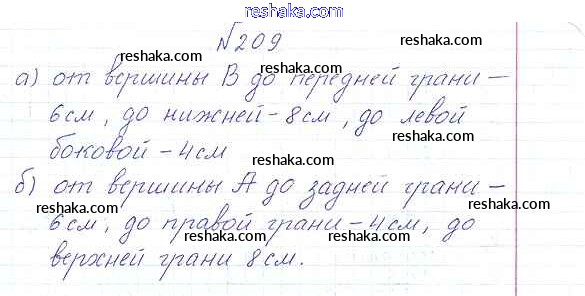 reshaka.com
№209
reshaka.com
reshaka.com
reshaka.com
а) от вершины В до передней грани –
reshaka.com
6см, до нижней – 8см, до левой
reshaka.com
reshaka.com
боковой – 4см
reshaka.com
б) от вершины А до задней грани –
reshaka.com
reshaka.com
6см, до правой грани – 4см, до
reshaka.com
reshaka.com
верхней грани 8см.